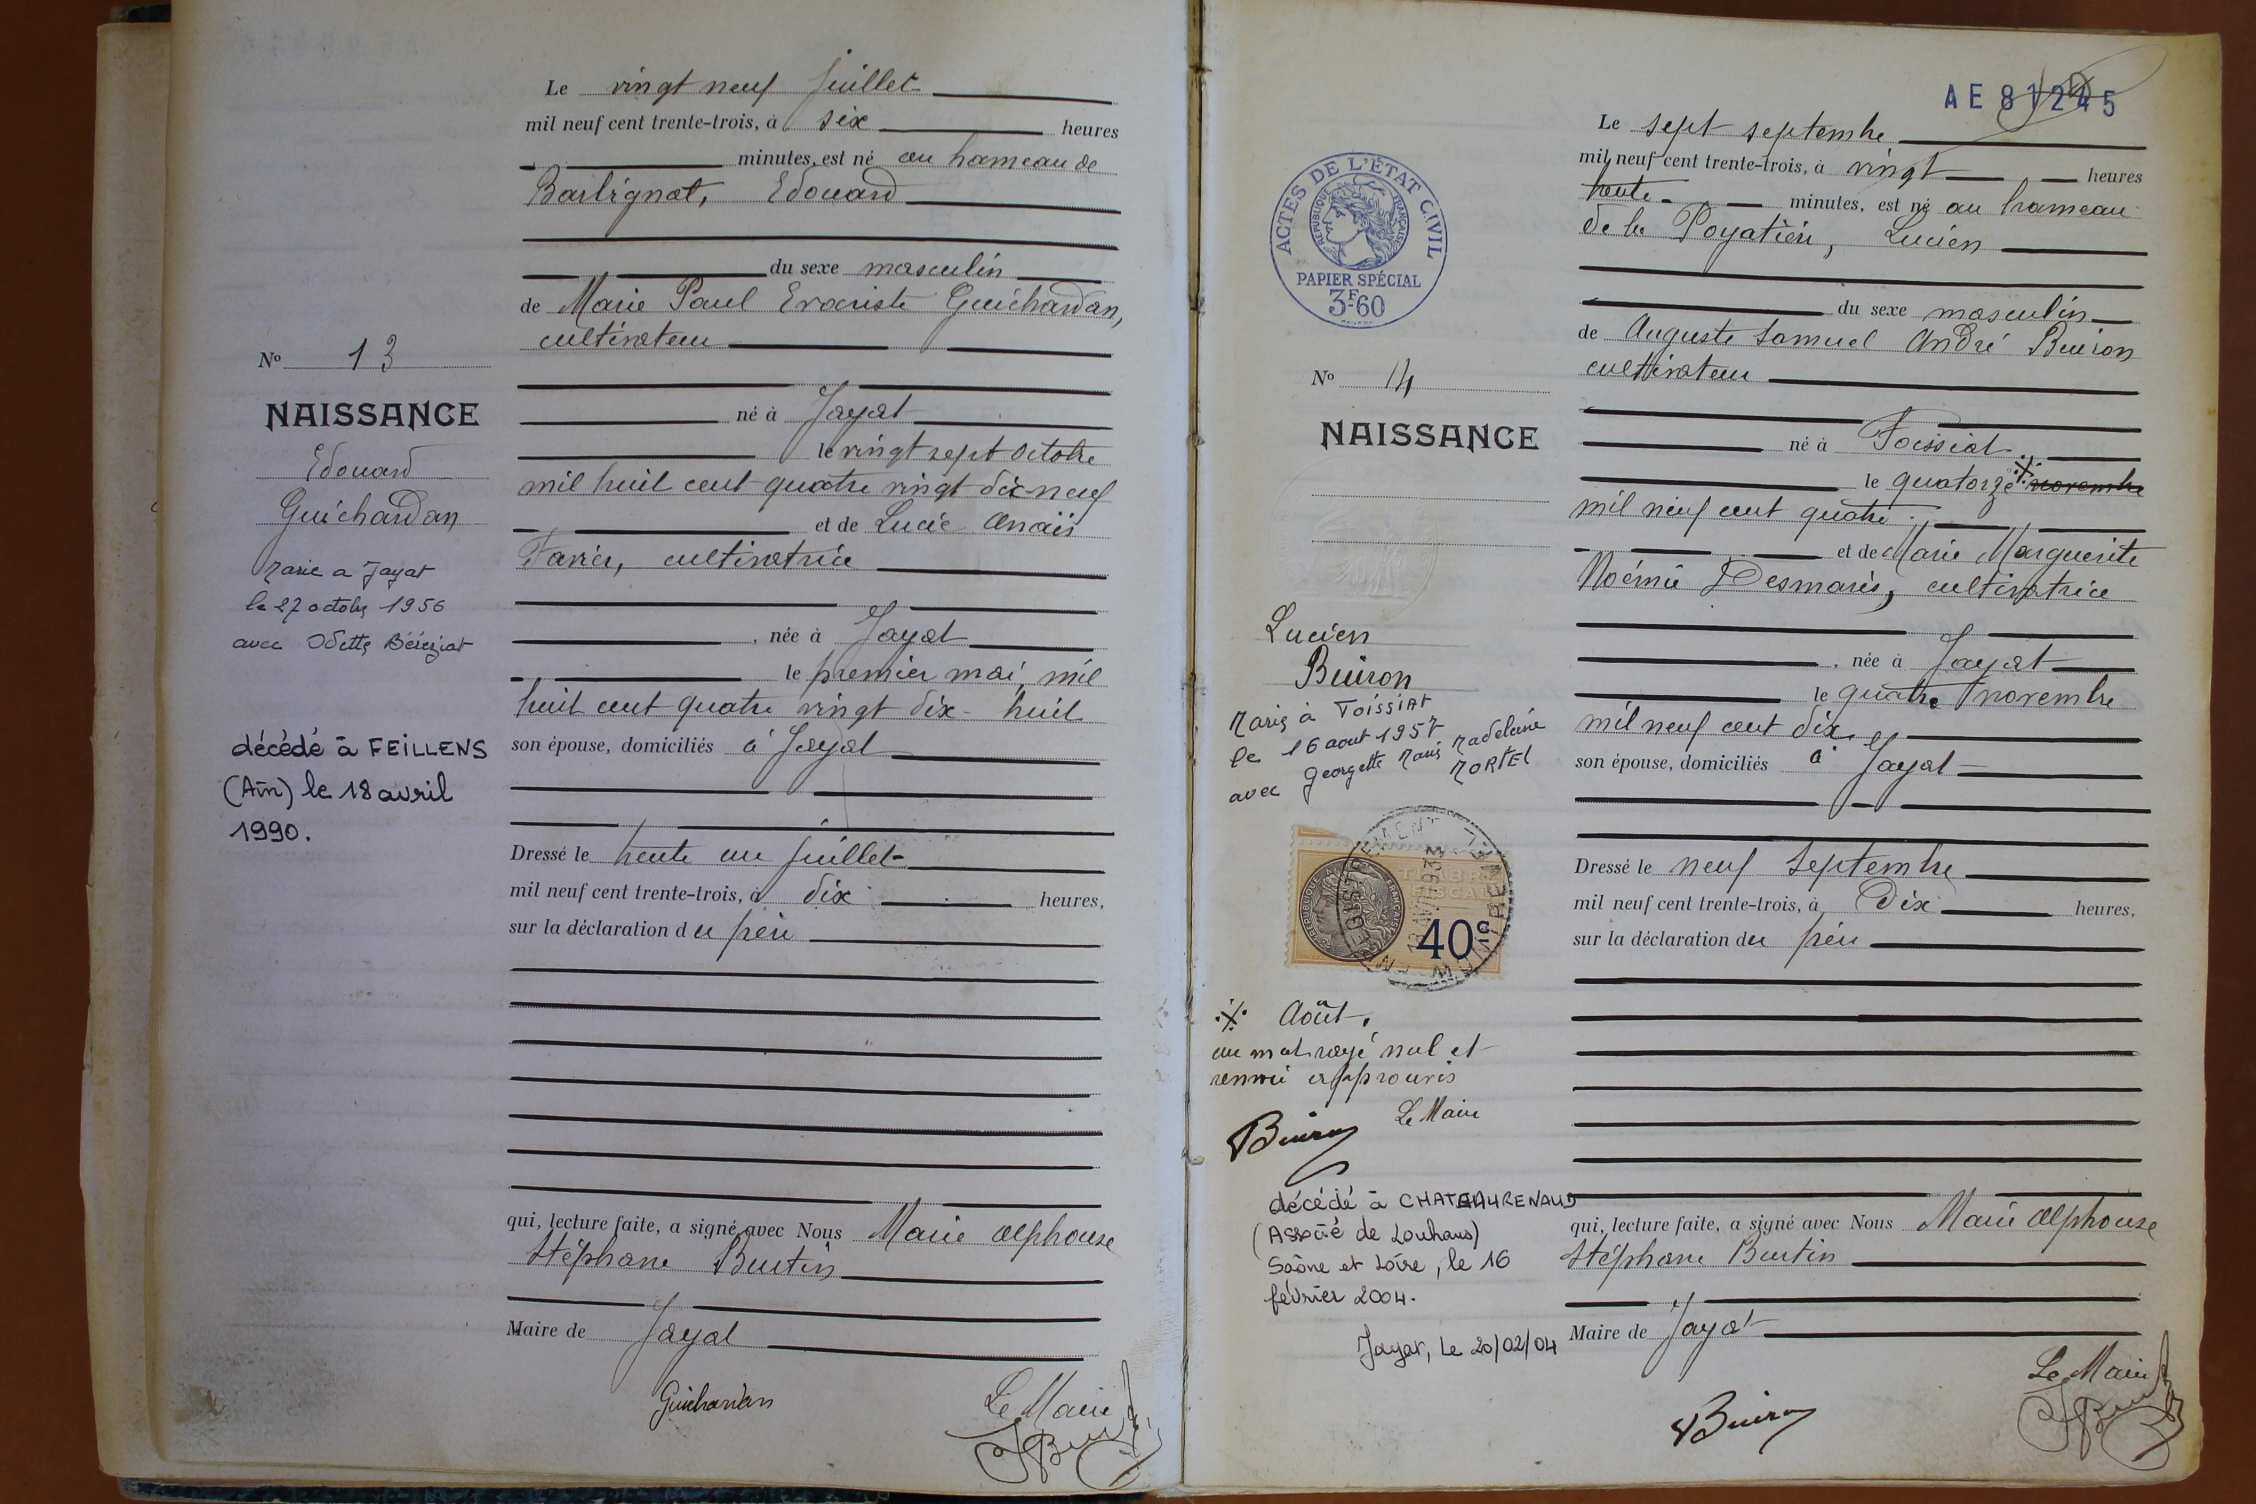 Le vingt neuf juillet
mil neuf cent trente-trois, à six heures
minutes, est né au hameau de
Barbignat, Edouard
du sexe masculin
de Marie Paul Evariste Guichardan,
cultivateur
né à Jayat
le vingt sept octobre
mil huit cent quatre vingt dix-neuf
et de Lucie Anaïs
Favier, cultivatrice
, née à Jayat
le premier mai, mil
huit cent quatre vingt dix-huit
son épouse, domiciliés à Jayat
Dressé le trente un juillet
mil neuf cent trente-trois, à dix heures,
sur la déclaration du père
qui, lecture faite, a signé avec Nous Marie Alphonse
Stéphane Burtin
Maire de Jayat
Guichardan
Le Maire
No 13
NAISSANCE
Edouard
Guichardan
Marié a Jayat
le 27 octobre 1956
avec Odette Béréziat
décédé à FEILLENS
(Ain) le 18 avril
1990.
AE 81245
Le sept septembre
mil neuf cent trente-trois, à vingt heures
trente minutes, est né au hameau
de la Poyatière, Lucien
du sexe masculin
de Auguste Samuel André Buiron
cultivateur
né à Foissiat
le quatorze ·/· novembre
mil neuf cent quatre
et de Marie Marguerite
Noémie Desmaris, cultivatrice
, née à Jayat
le quatre novembre
mil neuf cent dix
son épouse, domiciliés à Jayat
Dressé le neuf septembre
mil neuf cent trente-trois, à Dix heures,
sur la déclaration du père
qui, lecture faite, a signé avec Nous Marie Alphonse
Stéphane Burtin
Maire de Jayat
Le Maire
Buiron
ACTES DE L'ÉTAT CIVIL
RÉPUBLIQUE FRANÇAISE
PAPIER SPÉCIAL
3F60
No 14
NAISSANCE
Lucien
Buiron
Marié à FOISSIAT
le 16 aout 1957
avec Georgette Marie Madeleine
MORTEL
TIMBRE
FISCAL
RÉPUBLIQUE FRANÇAISE
40c
·/· Août.
un mot rayé nul et
renvoi approuvés
Le Maire
Buiron
décédé à CHATEAURENAUD
(Associé de Louhans)
Saône et Loire, le 16
février 2004.
Jayat, le 20/02/04